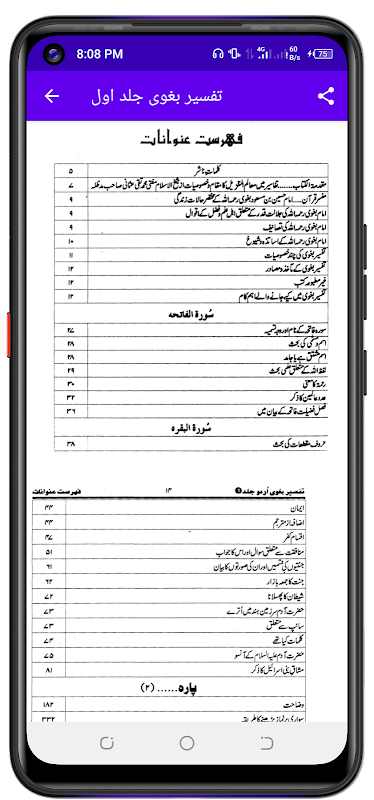 8:08 PM 4G 60 B/s 75
تفسیر بغوی جلد اول
فہرست عنوانات
کلمات ناشر ۵
مقدمۃ الکتاب...... تفاسیر میں معالم التنزیل کا مقام و خصوصیات از شیخ الاسلام مفتی محمد تقی عثمانی صاحب مدظلہ ۷
مفسر قرآن.... امام حسین بن مسعود بغوی رحمہ اللہ کے مختصر حالات زندگی ۹
امام بغوی رحمہ اللہ کی جلالت قدر کے متعلق اہل علم و فضل کے اقوال ۹
امام بغوی رحمہ اللہ کی تصانیف ۹
امام بغوی رحمہ اللہ کے اساتذہ و شیوخ ۱۰
تفسیر بغوی کی چند خصوصیات ۱۱
تفسیر بغوی کے مآخذ و مصادر ۱۲
غیر مطبوعہ کتب ۱۲
تفسیر بغوی میں کیے جانے والے اہم کام ۱۲
سُورة الفاتحه
سورہ فاتحہ کے نام اور وجہ تسمیہ ۲۷
اسم و مسمی کی بحث ۲۸
اسم مشتق ہے یا جامد ۲۸
لفظ اللہ کے متعلق علمی بحث ۲۹
رحمۃ کا معنی ۳۰
عدد عالمین کا ذکر ۳۲
فصل فضیلت فاتحہ کے بیان میں ۳۶
سُورة البقره
حروف مقطعات کی بحث ۳۸
تفسیر بغوی اُردو جلد ۱ ۱۴ فہرست عنوانات
ایمان ۴۴
اضافہ از مترجم ۴۴
اقسام کفر ۴۷
منافقت سے متعلق سوال اور اس کا جواب ۵۱
جنتیوں کی قسمیں اور ان کی صورتوں کا بیان ۶۱
جنت کا جمعہ بازار ۶۲
شیطان کا پھسلانا ۷۲
حضرت آدم سرزمین ہند میں اُترے ۷۳
سانپ سے متعلق ۷۳
کلمات کیا تھے ۷۴
حضرت آدم علیہ السلام کے آنسو ۷۵
میثاق بنی اسرائیل کا ذکر ۸۱
پارہ...... (۲)
وضاحت ۱۸۲
سواری پر نماز پڑھنے کا طریقہ ۳۳۲